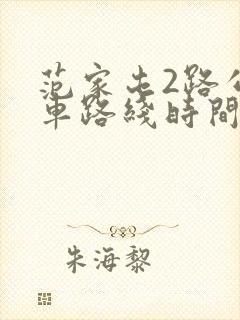 范家屯2路公
車路綫時間
朱海黎